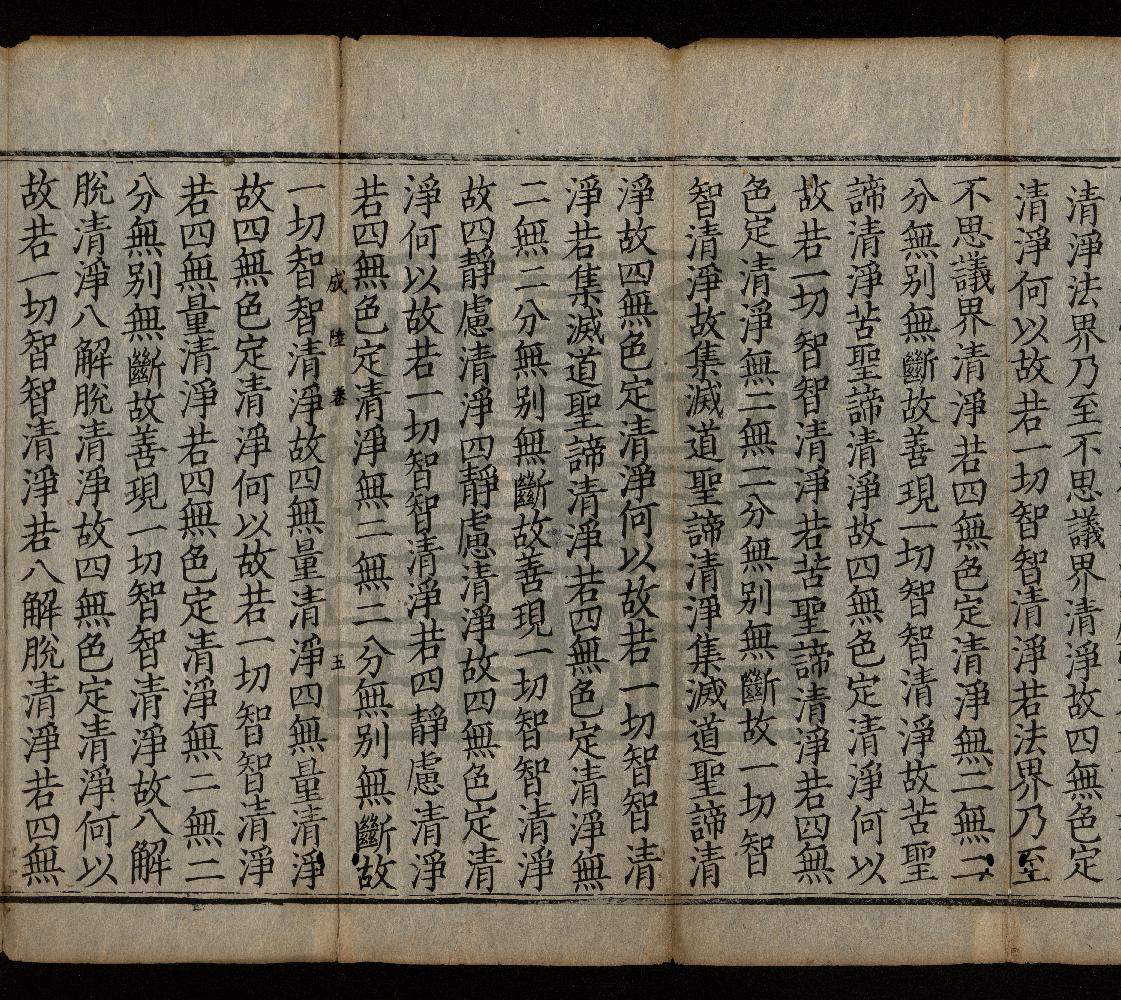 清淨法界乃至不思議界清淨故四無色定
清淨何以故若一切智智清淨若法界乃至
不思議界清淨若四無色定清淨無二無二
分無別無斷故善現一切智智清淨故苦聖
諦清淨苦聖諦清淨故四無色定清淨何以
故若一切智智清淨若苦聖諦清淨若四無
色定清淨無二無二分無別無斷故一切智
智清淨故集滅道聖諦清淨集滅道聖諦清
淨故四無色定清淨何以故若一切智智清
淨若集滅道聖諦清淨若四無色定清淨無
二無二分無別無斷故善現一切智智清淨
故四靜慮清淨四靜慮清淨故四無色定清
淨何以故若一切智智清淨若四靜慮清淨
若四無色定清淨無二無二分無別無斷故
成 陸 卷 五
一切智智清淨故四無量清淨四無量清淨
故四無色定清淨何以故若一切智智清淨
若四無量清淨若四無色定清淨無二無二
分無別無斷故善現一切智智清淨故八解
脫清淨八解脫清淨故四無色定清淨何以
故若一切智智清淨若八解脫清淨若四無